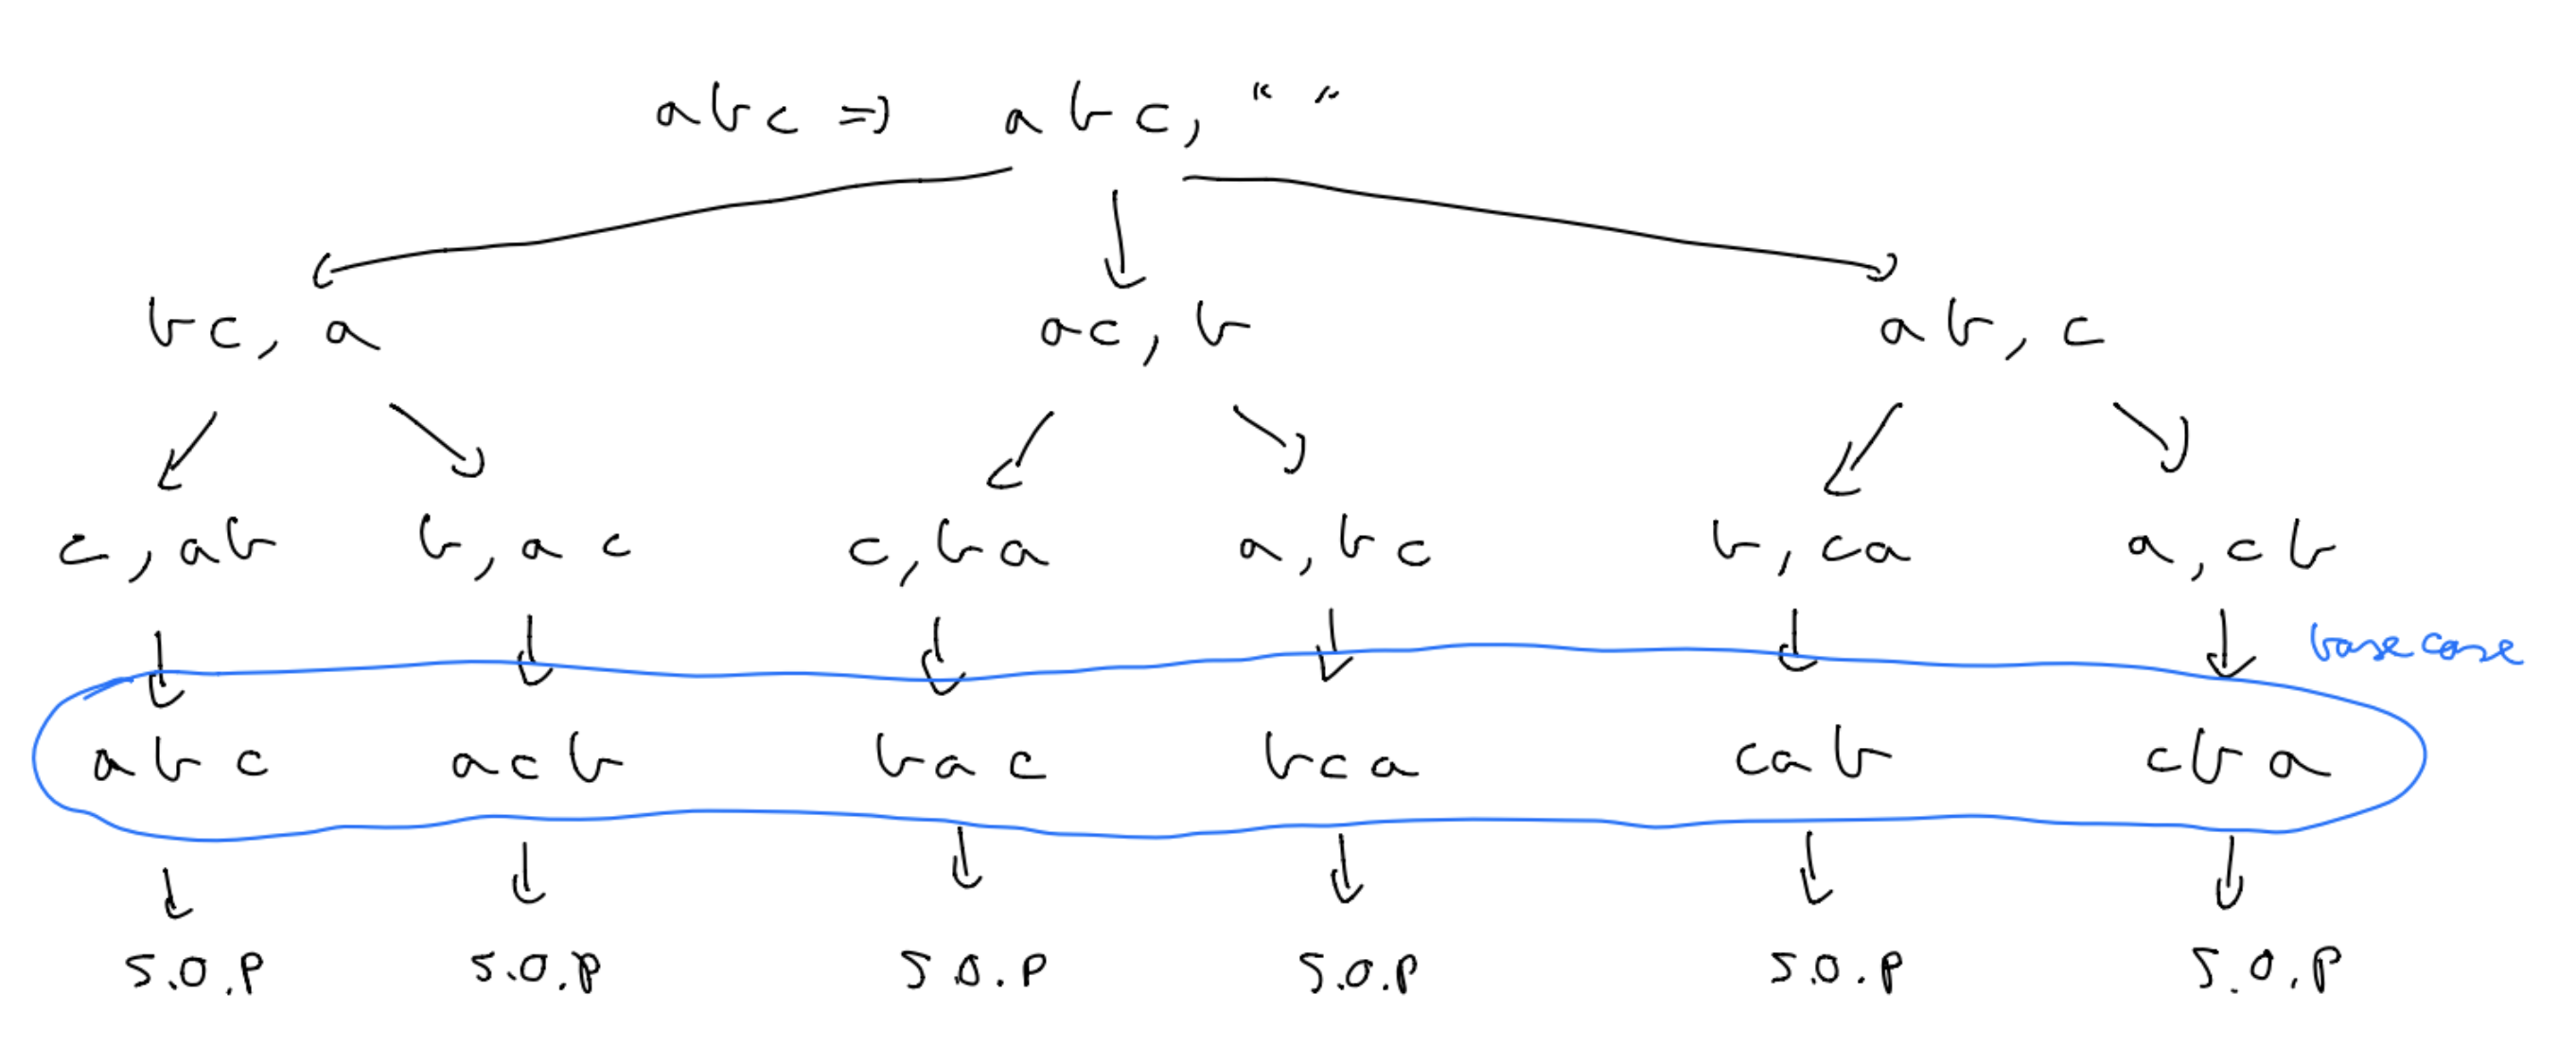 abc => abc, " "
bc, a ac, b ab, c
c, ab b, ac c, ba a, bc b, ca a, cb
base case
abc acb bac bca cab cba
S.O.P S.O.P S.O.P S.O.P S.O.P S.O.P